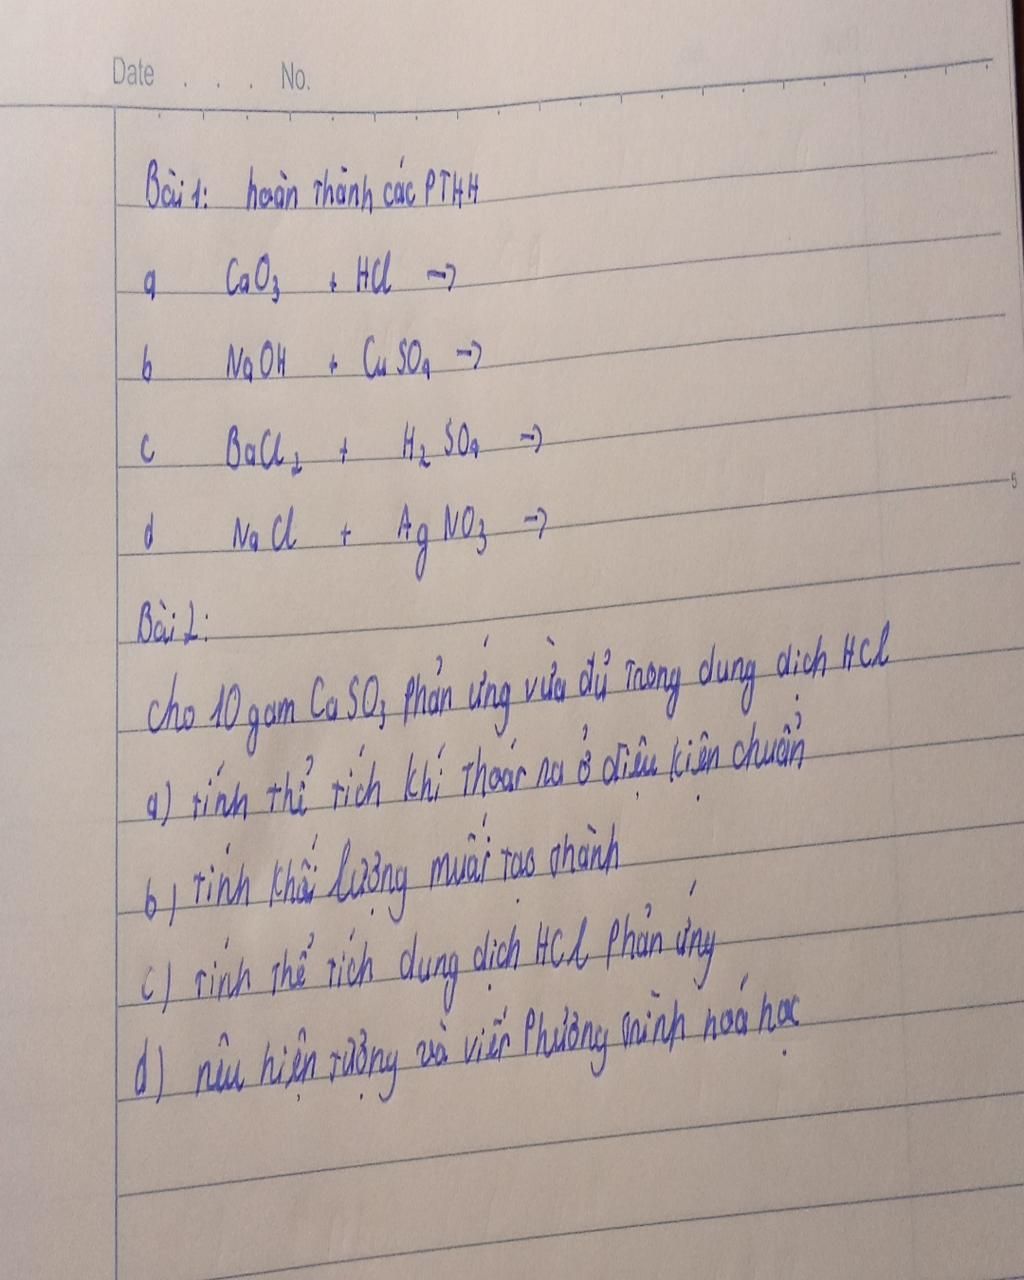 Date . . . No.
Bài 1: hoàn thành các PTHH
a CaO₃ + HCl →
b NaOH + CuSO₄ →
c BaCl₂ + H₂SO₄ →
d NaCl + AgNO₃ →
5
Bài 2:
cho 10 gam CaSO₃ phản ứng vừa đủ trong dung dịch HCl
a) tính thể tích khí thoát ra ở điều kiện chuẩn
b) tính khối lượng muối tạo thành
c) tính thể tích dung dịch HCl phản ứng
d) nêu hiện tượng và viết phương trình hoá học